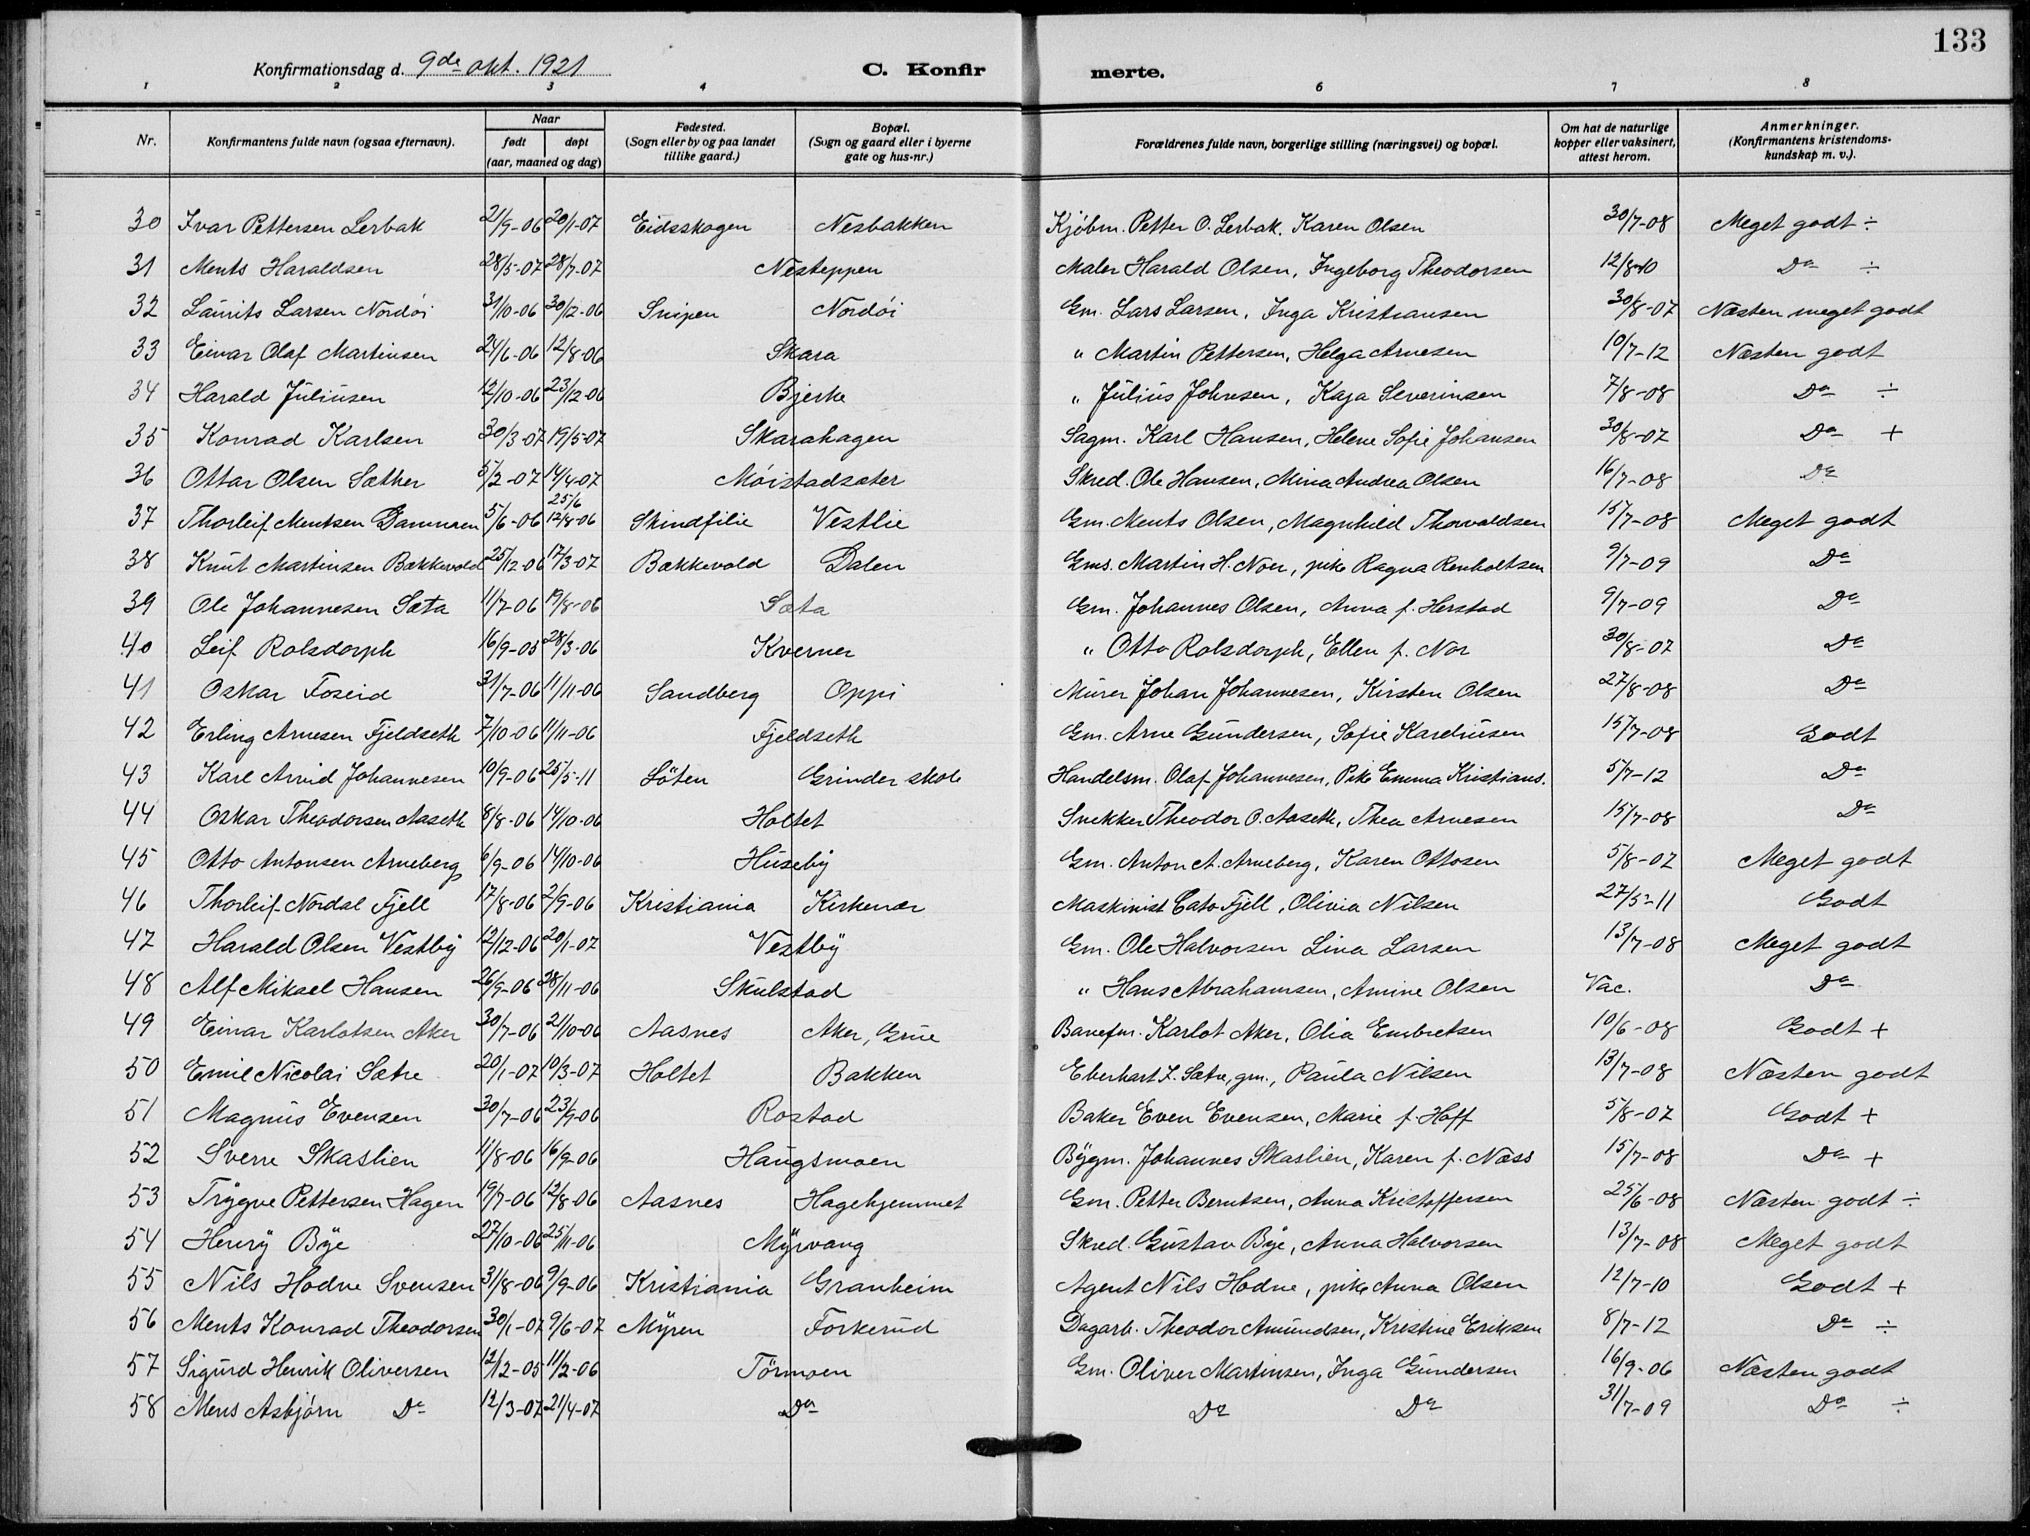 133
Konfirmationsdag d. 9de okt. 1921 C. Konfirmerte.
1 2 3 4 6 7 8
Nr. Konfirmantens fulde navn (ogsaa efternavn). Naar født døpt (aar, maaned og dag) Fødested. (Sogn eller by og paa landet tillike gaard.) Bopæl. (Sogn og gaard eller i byerne gate og hus-nr.) Forældrenes fulde navn, borgerlige stilling (næringsvei) og bopæl. Om hat de naturlige kopper eller vaksinert, attest herom. Anmerkninger. (Konfirmantens kristendomskundskap m. v.).
30 Ivar Pettersen Lerbak 21/9-06 20/1-07 Eidsskogen Nesbakken Kjøbm. Petter O. Lerbak. Karen Olsen 30/7-08 Meget godt ÷
31 Ments Haraldsen 28/5-07 28/7-07 Nesteppen Maler Harald Olsen, Ingeborg Theodorsen 12/8-10 Do ÷
32 Laurits Larsen Nordøi 31/10-06 30/12-06 Snipen Nordøi Gm. Lars Larsen, Inga Kristiansen 30/8-07 Næsten meget godt
33 Einar Olaf Martinsen 24/6-06 12/8-06 Skara " Martin Pettersen, Helga Arnesen 10/7-12 Næsten godt
34 Harald Juliusen 12/10-06 23/12-06 Bjerke " Julius Johnsen, Kaja Severinsen 7/8-08 Do ÷
35 Konrad Karlsen 30/3-07 19/5-07 Skarahagen Sagm. Karl Hansen, Helene Sofie Johansen 30/8-07 Do +
36 Ottar Olsen Sæther 5/2-07 14/4-07 Møistadsæter Skred. Ole Hansen, Mina Andrea Olsen 16/7-08 Do
37 Thorleif Mentsen Dammen 5/6-06 25/6 12/8-06 Skindfilie Vestlie Gm. Ments Olsen, Magnhild Thorvaldsen 15/7-08 Meget godt
38 Knut Martinsen Bækkevold 25/12-06 17/3-07 Bækkevold Dalen Gms. Martin H. Noer, pike Ragna Renholtsen 9/7-09 Do
39 Ole Johannesen Sæta 11/7-06 19/8-06 Sæta Gm. Johannes Olsen, Anna f. Herstad 9/7-09 Do
40 Leif Rolsdorph 16/9-05 28/3-06 Kverner " Otto Rolsdorph, Ellen f. Nor 30/8-07 Do
41 Oskar Foseid 31/7-06 11/11-06 Sandberg Oppi Murer Johan Johannesen, Kirsten Olsen 27/8-08 Do
42 Erling Arnesen Fjeldseth 7/10-06 11/11-06 Fjeldseth Gm. Arne Gundersen, Sofie Kareliusen 15/7-08 Godt
43 Karl Arvid Johannesen 10/9-06 25/5-11 Løten Grinder skole Handelsm. Olaf Johannesen, Pike Emma Kristians. 5/7-12 Do
44 Oskar Theodorsen Aaseth 8/8-06 14/10-06 Holtet Snekker Theodor O. Aaseth, Thea Arnesen 15/7-08 Do
45 Otto Antonsen Arneberg 6/9-06 14/10-06 Huseby Gm. Anton A. Arneberg, Karen Ottosen 5/8-07 Meget godt
46 Thorleif Nordal Fjell 17/8-06 2/9-06 Kristiania Kirkenær Maskinist Cato Fjell, Olivia Nilsen 27/5-11 Godt
47 Harald Olsen Vestby 12/12-06 20/1-07 Vestby Gm. Ole Halvorsen Lina Larsen 13/7-08 Meget godt
48 Alf Mikael Hansen 26/9-06 28/11-06 Skulstad " Hans Abrahamsen, Amine Olsen Vac. Do
49 Einar Karlotsen Aker 30/7-06 21/10-06 Aasnes Aker, Grue Banefm. Karlot Aker, Olia Embretsen 10/6-08 Godt +
50 Emil Nicolai Sætre 20/1-07 10/3-07 Holtet Bakken Eberhart L. Sætre, gm., Paula Nilsen 13/7-08 Næsten godt
51 Magnus Evensen 30/7-06 23/9-06 Rostad Baker Even Evensen, Marie f. Hoff 5/8-07 Godt +
52 Sverre Skaslien 11/8-06 16/9-06 Haugsmoen Bygm. Johannes Skaslien, Karen f. Næss 15/7-08 Do +
53 Trygve Pettersen Hagen 19/7-06 12/8-06 Aasnes Hagehjemmet Gm. Petter Berntsen, Anna Kristoffersen 25/6-08 Næsten godt ÷
54 Henry Bye 27/10-06 25/11-06 Myrvang Skred. Gustav Bye, Anna Halvorsen 13/7-08 Meget godt
55 Nils Hodne Svensen 31/8-06 9/9-06 Kristiania Granheim Agent Nils Hodne, pike Anna Olsen 12/7-10 Godt +
56 Ments Konrad Theodorsen 30/1-07 9/6-07 Myren Forkerud Dagarb. Theodor Amundsen, Kristine Eriksen 8/7-12 Do ÷
57 Sigurd Henrik Oliversen 12/12-05 11/2-06 Tørmoen Gm. Oliver Martinsen, Inga Gundersen 16/9-06 Næsten godt
58 Mens Asbjørn Do 12/3-07 21/4-07 Do Do Do 31/7-09 Do ÷